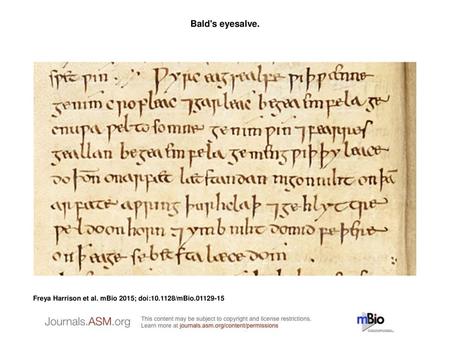 Bald's eyesalve.
ƿin ⁊ ƿyrc eagsealfe ƿiþ ƿænne
genim cropleac ⁊garleac begea emfela ge
cnuƿa ƿel tosomne genim ƿin ⁊ fearres
geallan begea emfela gemeng ƿiþ þy leace
do þoñ on arfæt læt standan nigon niht on þā
arfate aƿring þurh claþ ⁊gehlyttre
ƿel do on horn ⁊ymb niht do mid feþre
on eage se betsta læcedom
Freya Harrison et al. mBio 2015; doi:10.1128/mBio.01129-15
Journals.ASM.org
This content may be subject to copyright and license restrictions.
Learn more at journals.asm.org/content/permissions
mBio